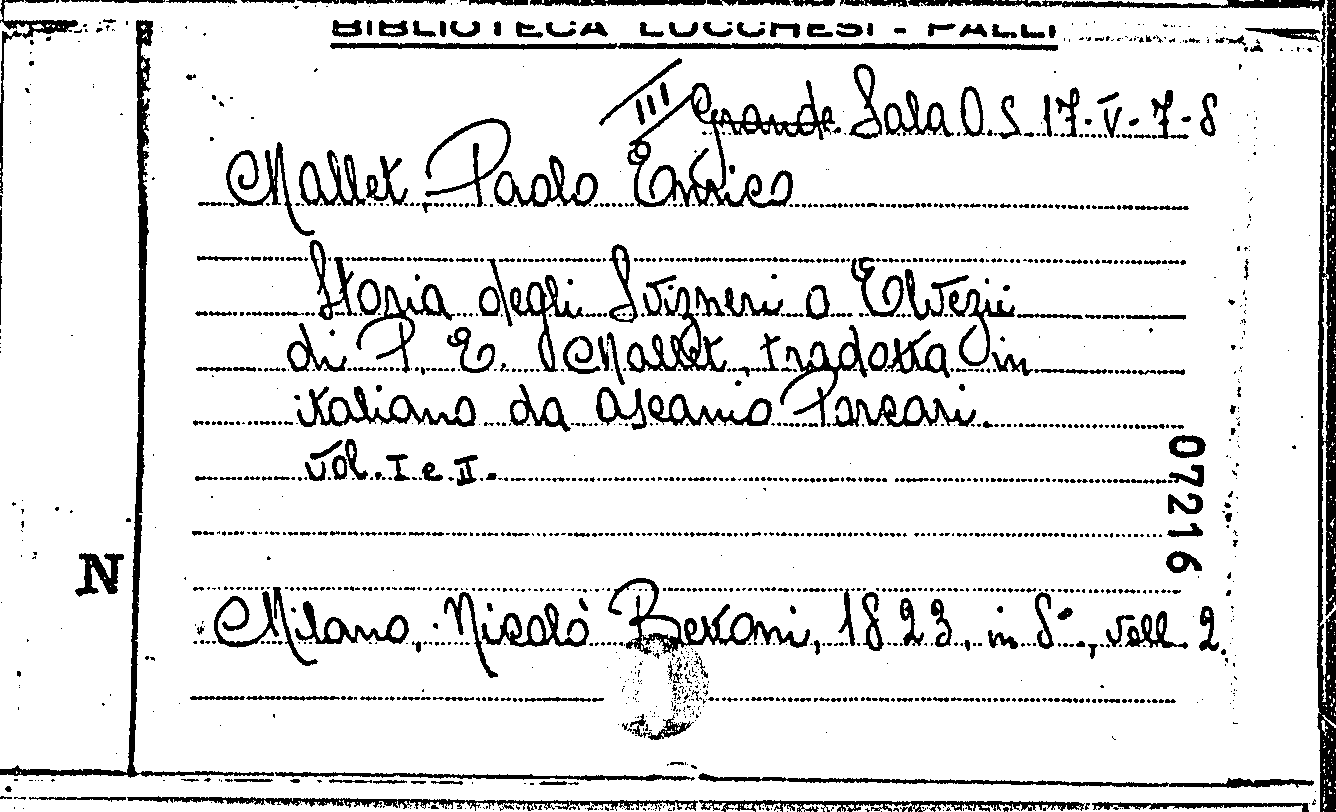 BIBLIOTECA LUCCHESI - PALLI
III Grande Sala O.S. 17-V-7-8
Mallet, Paolo Enrico
Storia degli Svizzeri o Elvezii
di P. E. Mallet, tradotta in
italiano da Ascanio Porcari.
vol. I e II.
07216
N
Milano, Nicolò Bettoni, 1823, in 8°, voll. 2.